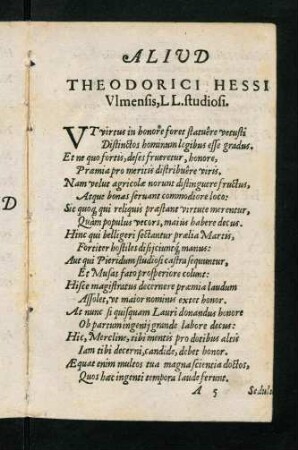 ALIVD
THEODORICI HESSI
Vlmensis, LL. studiosi.
VT virtus in honore foret statuêre vetusti
Distinctos hominum legibus esse gradus.
Et ne quo fortis, deses frueretur, honore,
Præmia pro meritis distribuêre viris.
Nam velut agricolæ norunt distinguere fructus,
Atque bonas servant commodiore loco:
Sic quoq; qui reliquis præstant virtute merentur,
Quàm populus veteri, maius habere decus.
Hinc qui belligeri sectantur prælia Martis,
Fortiter hostiles disijciuntq; manus:
Aut qui Pieridum studiosi castra sequuntur,
Et Musas fato prosperiore colunt:
Hisce magistratus decernere præmia laudum
Assolet, vt maior nominis extet honor.
At nunc si quisquam Lauri donandus honore
Ob partum ingenij grande labore decus:
Hic, Mercline, tibi mentis pro dotibus altis
Iam tibi decerni, candide, debet honor.
Æquat enim multos tua magna scientia doctos,
Quos hæc ingenti tempora laude ferunt.
A 5
Sedul
D